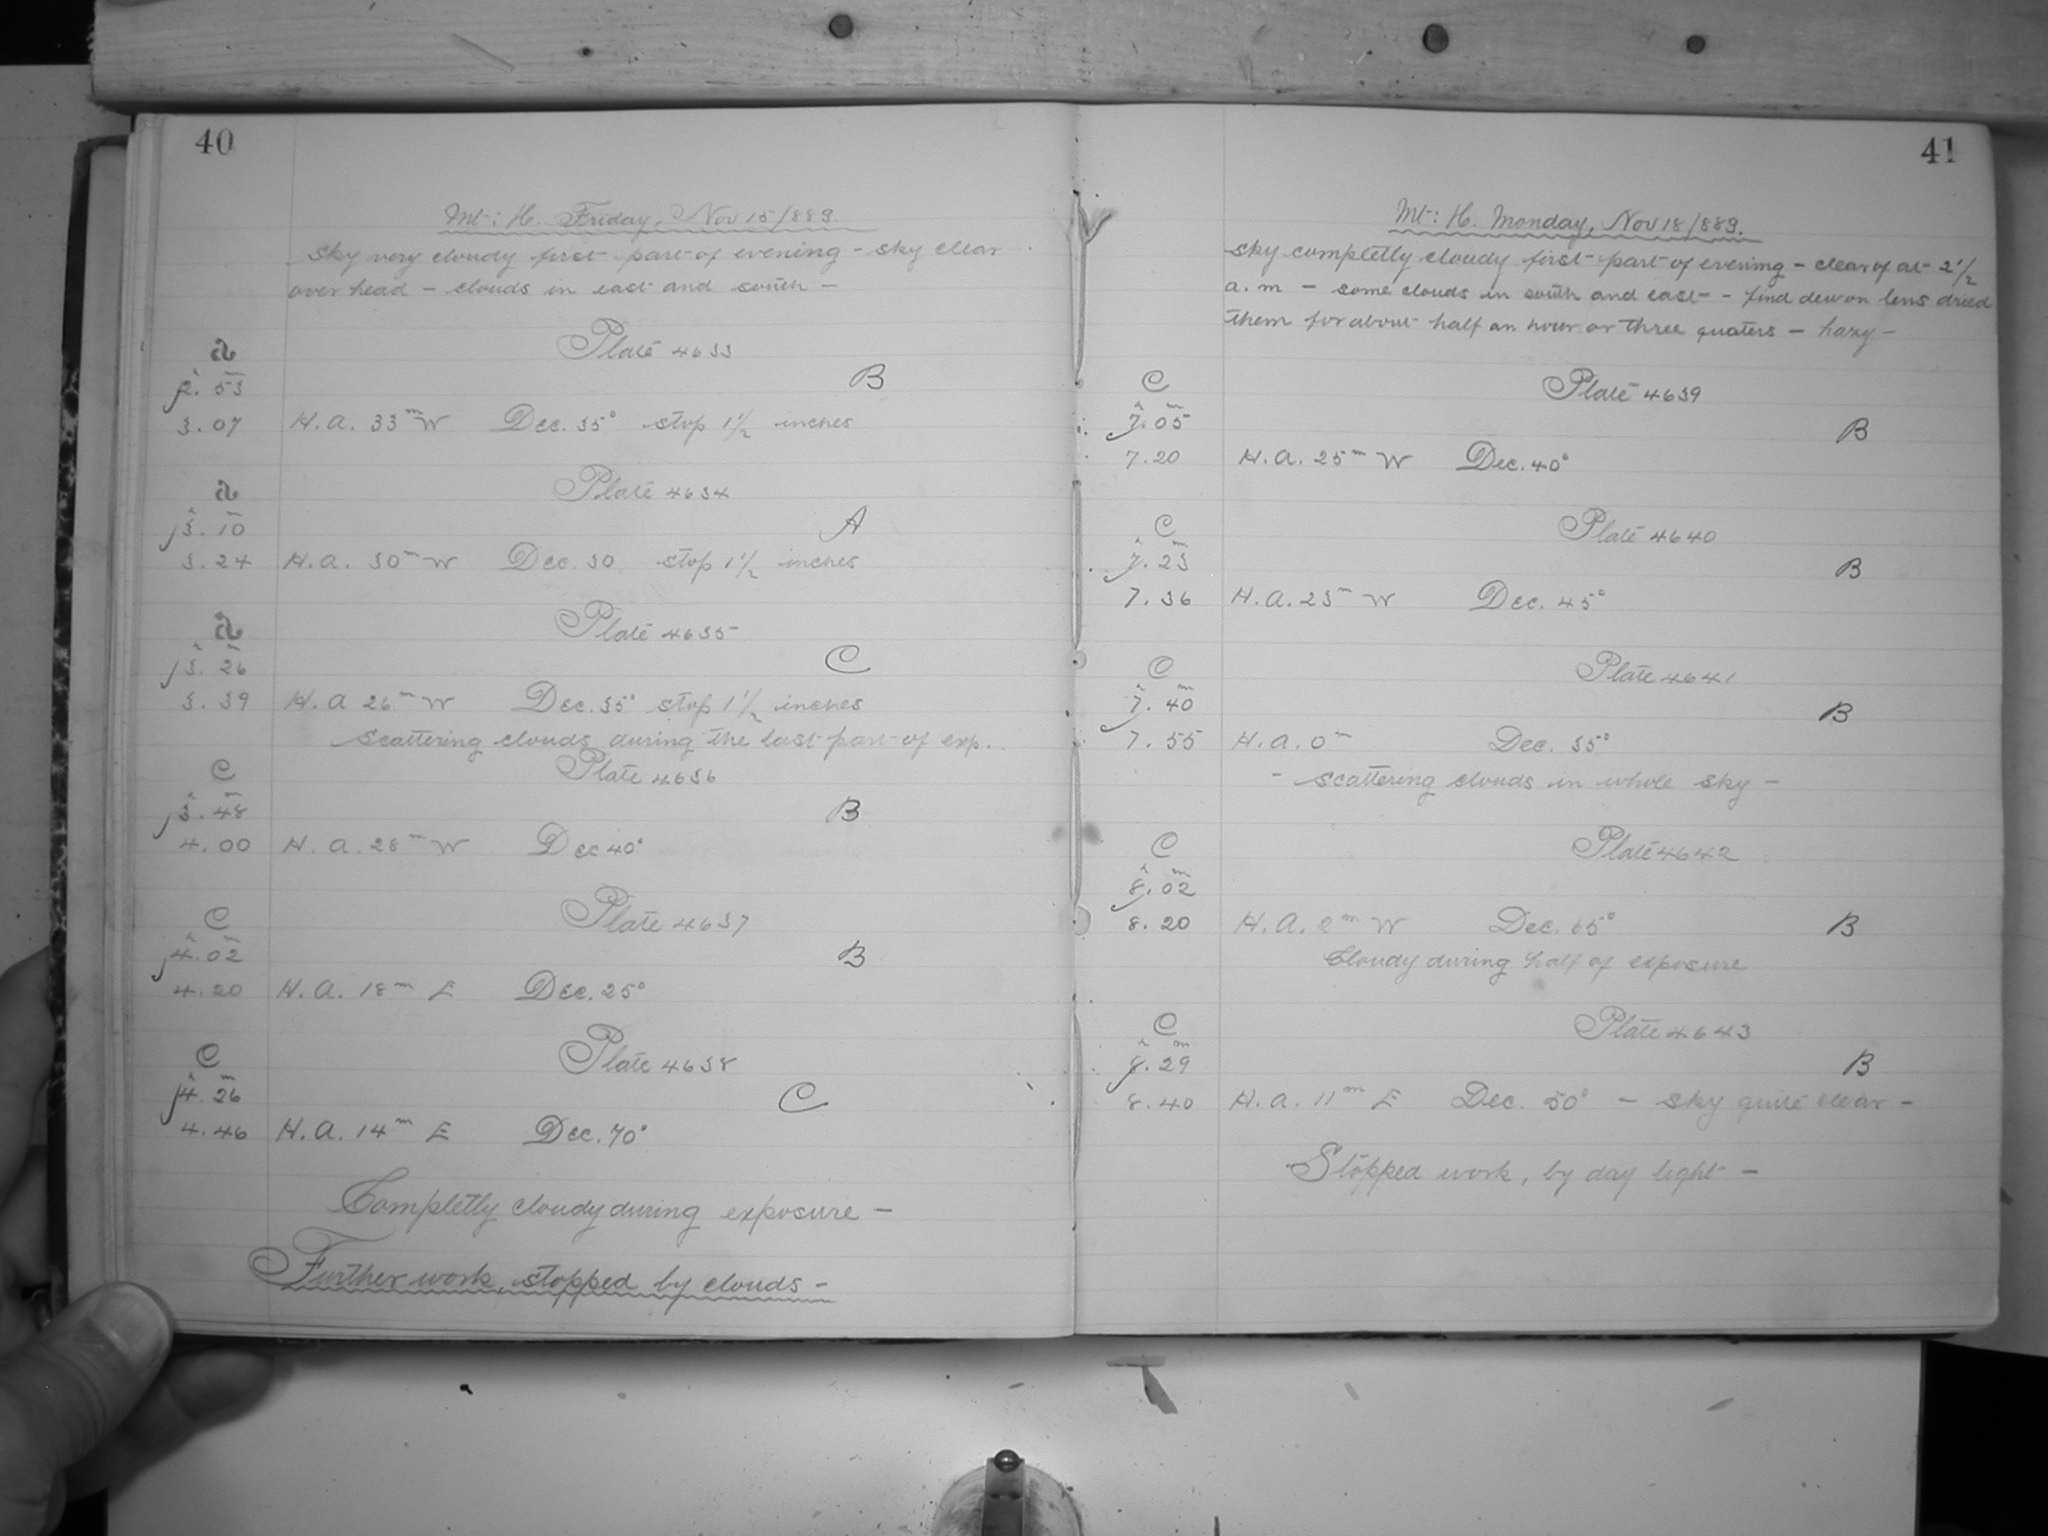 40
Mt: H. Friday, Nov 15/889.
sky very cloudy first part of evening - sky clear
over head - clouds in east and south -
Plate 4633
h m
2. 53 B
3.07 H.A. 33m W Dec. 35° stop 1 1/2 inches
Plate 4634
h m
3. 10 A
3.24 H.A. 30m W Dec. 30 stop 1 1/2 inches
Plate 4635
h m
3. 26 C
3.39 H.A 26m W Dec. 35° stop 1 1/2 inches
scattering clouds during the last part of exp.
C Plate 4636
h m
3. 48 B
4.00 H.A. 28m W Dec 40°
C Plate 4637
h m
4.02 B
4.20 H.A. 18m E Dec. 25°
C Plate 4638
h m
4. 26 C
4.46 H.A. 14m E Dec. 70°
Completly cloudy during exposure -
Further work, stopped by clouds -
41
Mt: H. Monday, Nov 18/889.
sky completly cloudy first part of evening - clear of at 2 1/2
a.m - some clouds in south and east - find dew on lens dried
them for about half an hour or three quaters - hazy -
C Plate 4639
h m
7.05 B
7.20 H.A. 25m W Dec. 40°
C Plate 4640
h m
7. 23 B
7.36 H.A. 23m W Dec. 45°
C Plate 4641
h m
7. 40 B
7.55 H.A. 0m Dec. 35°
- scattering clouds in whole sky -
C Plate 4642
h m
8.02
8.20 H.A. 2m W Dec. 65° B
Cloudy during half of exposure
C Plate 4643
h m
8.29 B
8.40 H.A. 11m E Dec. 50° - sky quite clear -
Stopped work, by day light -